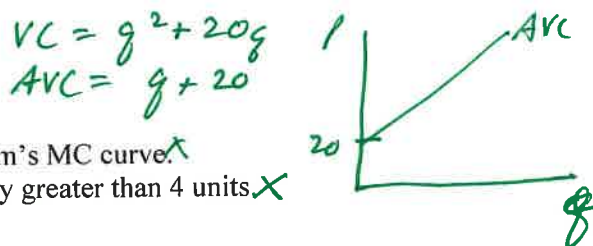 VC = q² + 20q
AVC = q + 20
m's MC curve. X
y greater than 4 units X
P
AVC
20
q